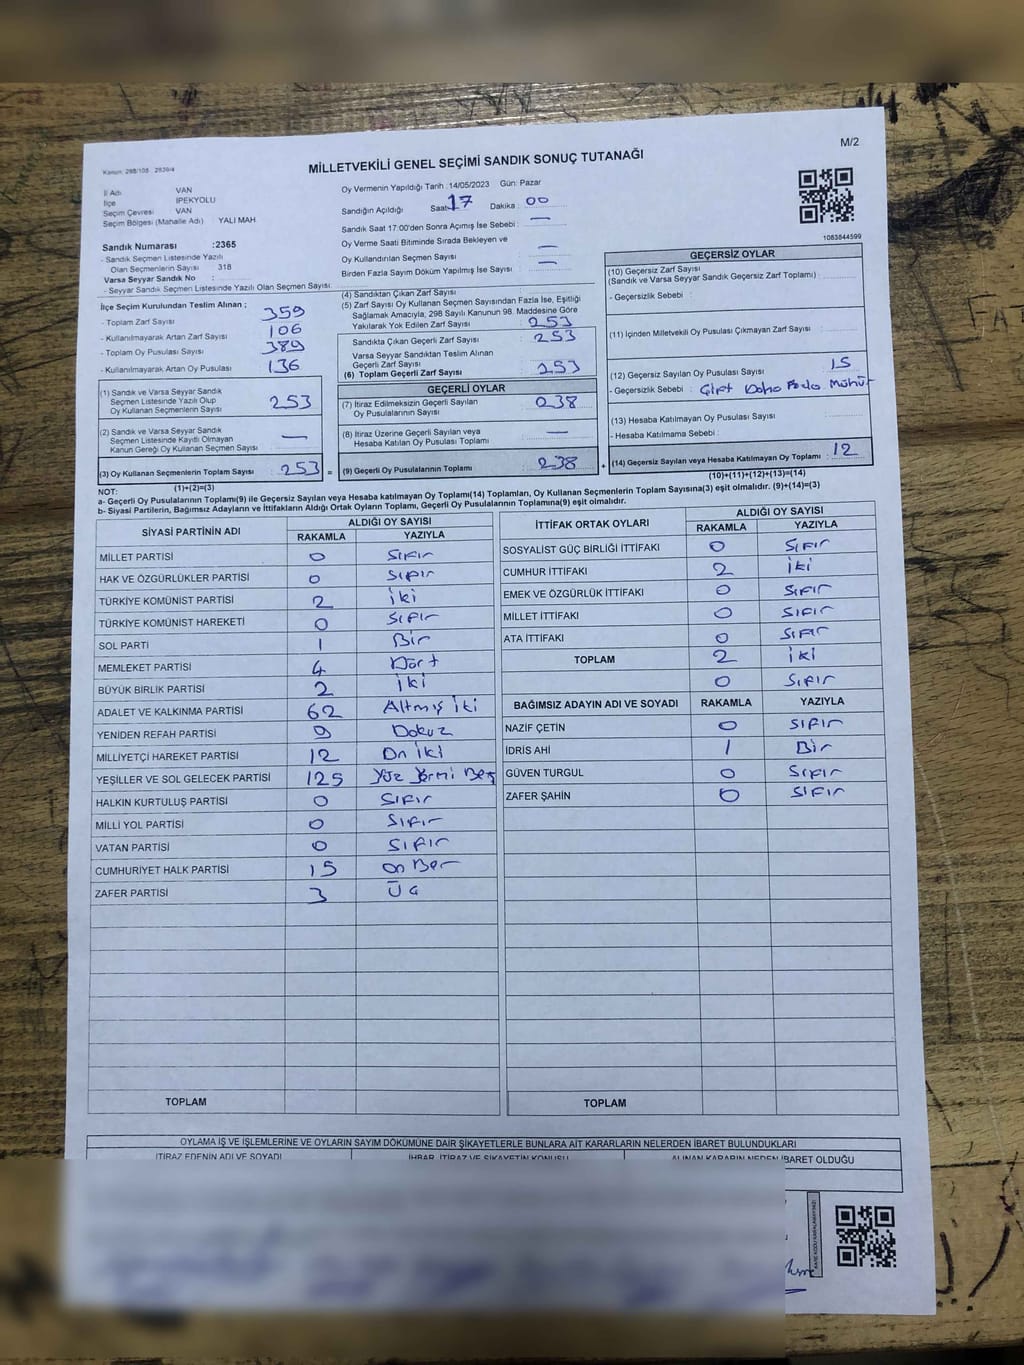 M/2
Kanun: 298/105 2839/4
MİLLETVEKİLİ GENEL SEÇİMİ SANDIK SONUÇ TUTANAĞI
İl Adı VAN
İlçe İPEKYOLU
Seçim Çevresi VAN
Seçim Bölgesi (Mahalle Adı) : YALI MAH
Oy Vermenin Yapıldığı Tarih :14/05/2023 Gün: Pazar
Sandığın Açıldığı Saat: 17 Dakika : 00
Sandık Saat 17.00'den Sonra Açımış İse Sebebi : —
Oy Verme Saati Bitiminde Sırada Bekleyen ve
Oy Kullandırılan Seçmen Sayısı —
Birden Fazla Sayım Döküm Yapılmış İse Sayısı : —
1083844599
Sandık Numarası :2365
- Sandık Seçmen Listesinde Yazılı
Olan Seçmenlerin Sayısı 318
Varsa Seyyar Sandık No :
- Seyyar Sandık Seçmen Listesinde Yazılı Olan Seçmen Sayısı:
İlçe Seçim Kurulundan Teslim Alınan ;
- Toplam Zarf Sayısı 359
- Kullanılmayarak Artan Zarf Sayısı 106
- Toplam Oy Pusulası Sayısı 389
- Kullanılmayarak Artan Oy Pusulası 136
(1) Sandık ve Varsa Seyyar Sandık
Seçmen Listesinde Yazılı Olup
Oy Kullanan Seçmenlerin Sayısı 253
(2) Sandık ve Varsa Seyyar Sandık
Seçmen Listesinde Kayıtlı Olmayan
Kanun Gereği Oy Kullanan Seçmen Sayısı —
(3) Oy Kullanan Seçmenlerin Toplam Sayısı 253 =
(1)+(2)=(3)
(4) Sandıktan Çıkan Zarf Sayısı :
(5) Zarf Sayısı Oy Kullanan Seçmen Sayısından Fazla İse, Eşitliği
Sağlamak Amacıyla, 298 Sayılı Kanunun 98. Maddesine Göre
Yakılarak Yok Edilen Zarf Sayısı : 253
Sandıkta Çıkan Geçerli Zarf Sayısı : 253
Varsa Seyyar Sandıktan Teslim Alınan
Geçerli Zarf Sayısı
(6) Toplam Geçerli Zarf Sayısı : 253
GEÇERLİ OYLAR
(7) İtiraz Edilmeksizin Geçerli Sayılan
Oy Pusulalarının Sayısı : 238
(8) İtiraz Üzerine Geçerli Sayılan veya
Hesaba Katılan Oy Pusulası Toplamı : —
(9) Geçerli Oy Pusulalarının Toplamı : 238 +
GEÇERSİZ OYLAR
(10) Geçersiz Zarf Sayısı
(Sandık ve Varsa Seyyar Sandık Geçersiz Zarf Toplamı) :
- Geçersizlik Sebebi :
(11) İçinden Milletvekili Oy Pusulası Çıkmayan Zarf Sayısı :
(12) Geçersiz Sayılan Oy Pusulası Sayısı 15
- Geçersizlik Sebebi : Çift Daha Fazla Mühür
(13) Hesaba Katılmayan Oy Pusulası Sayısı :
- Hesaba Katılmama Sebebi :
(14) Geçersiz Sayılan veya Hesaba Katılmayan Oy Toplamı : 12
(10)+(11)+(12)+(13)=(14)
NOT:
a- Geçerli Oy Pusulalarının Toplamı(9) ile Geçersiz Sayılan veya Hesaba katılmayan Oy Toplamı(14) Toplamları, Oy Kullanan Seçmenlerin Toplam Sayısına(3) eşit olmalıdır. (9)+(14)=(3)
b- Siyasi Partilerin, Bağımsız Adayların ve İttifakların Aldığı Ortak Oyların Toplamı, Geçerli Oy Pusulalarının Toplamına(9) eşit olmalıdır.
SİYASİ PARTİNİN ADI ALDIĞI OY SAYISI
RAKAMLA YAZIYLA
MİLLET PARTİSİ 0 Sıfır
HAK VE ÖZGÜRLÜKLER PARTİSİ 0 Sıfır
TÜRKİYE KOMÜNİST PARTİSİ 2 iki
TÜRKİYE KOMÜNİST HAREKETİ 0 Sıfır
SOL PARTİ 1 Bir
MEMLEKET PARTİSİ 4 Dört
BÜYÜK BİRLİK PARTİSİ 2 iki
ADALET VE KALKINMA PARTİSİ 62 Altmış iki
YENİDEN REFAH PARTİSİ 9 Dokuz
MİLLİYETÇİ HAREKET PARTİSİ 12 On iki
YEŞİLLER VE SOL GELECEK PARTİSİ 125 Yüz Yirmi Beş
HALKIN KURTULUŞ PARTİSİ 0 Sıfır
MİLLİ YOL PARTİSİ 0 Sıfır
VATAN PARTİSİ 0 Sıfır
CUMHURİYET HALK PARTİSİ 15 on Beş
ZAFER PARTİSİ 3 Üç
TOPLAM
İTTİFAK ORTAK OYLARI ALDIĞI OY SAYISI
RAKAMLA YAZIYLA
SOSYALİST GÜÇ BİRLİĞİ İTTİFAKI 0 Sıfır
CUMHUR İTTİFAKI 2 iki
EMEK VE ÖZGÜRLÜK İTTİFAKI 0 Sıfır
MİLLET İTTİFAKI 0 Sıfır
ATA İTTİFAKI 0 Sıfır
TOPLAM 2 iki
0 Sıfır
BAĞIMSIZ ADAYIN ADI VE SOYADI RAKAMLA YAZIYLA
NAZİF ÇETİN 0 Sıfır
İDRİS AHİ 1 Bir
GÜVEN TURGUL 0 Sıfır
ZAFER ŞAHİN 0 Sıfır
TOPLAM
OYLAMA İŞ VE İŞLEMLERİNE VE OYLARIN SAYIM DÖKÜMÜNE DAİR ŞİKAYETLERLE BUNLARA AİT KARARLARIN NELERDEN İBARET BULUNDUKLARI
İTİRAZ EDENİN ADI VE SOYADI İHBAR, İTİRAZ VE ŞİKAYETİN KONUSU ALINAN KARARIN NEDEN İBARET OLDUĞU